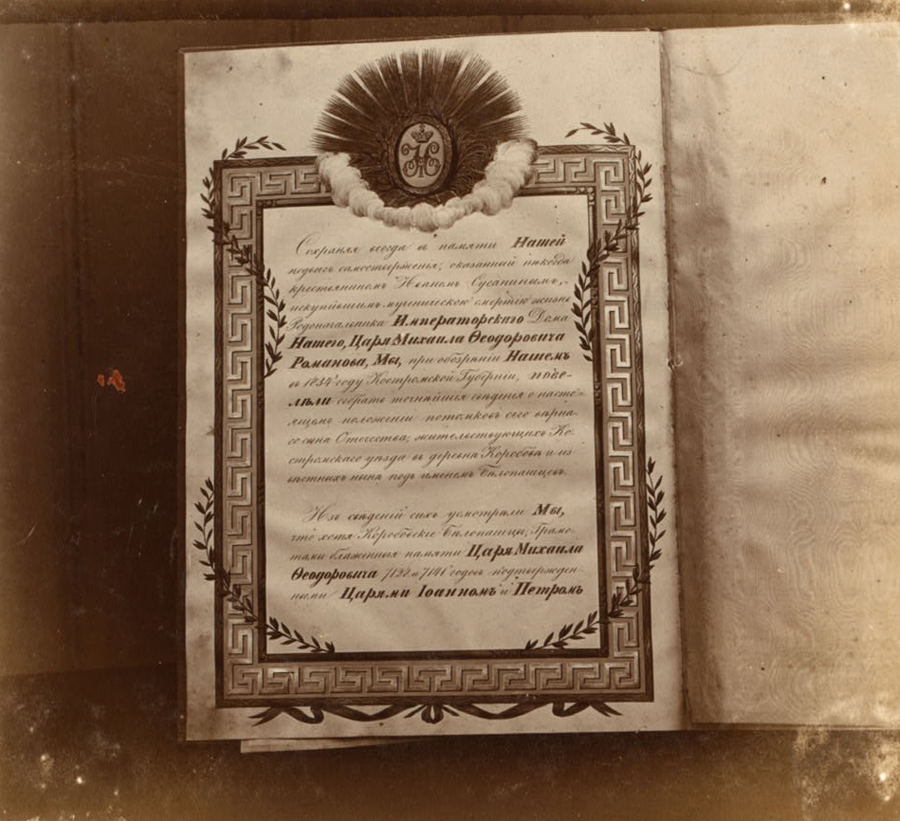 Сохраняя всегда въ памяти Нашей
подвигъ самоотверженія, оказанный нѣкогда
крестьяниномъ Иваномъ Сусанинымъ,
искупившимъ мученическою смертію жизнь
Родоначальника Императорскаго Дома
Нашего, Царя Михаила Ѳеодоровича
Романова, Мы, при обозрѣніи Нашемъ
въ 1834 году Костромской Губерніи, пове-
лѣли собрать точнѣйшія свѣденія о насто-
ящемъ положеніи потомковъ сего вѣрна-
го сына Отечества, жительствующихъ Ко-
стромскаго уѣзда въ деревнѣ Коробовѣ и из-
вѣстныхъ нынѣ подъ именемъ Бѣлопашцевъ.
Изъ свѣденій сихъ усмотрѣли Мы,
что хотя Коробовскіе Бѣлопашцы, Грамо-
тами блаженныя памяти Царя Михаила
Ѳеодоровича 7128 и 7141 годовъ подтвержден-
ными Царями Іоанномъ и Петромъ